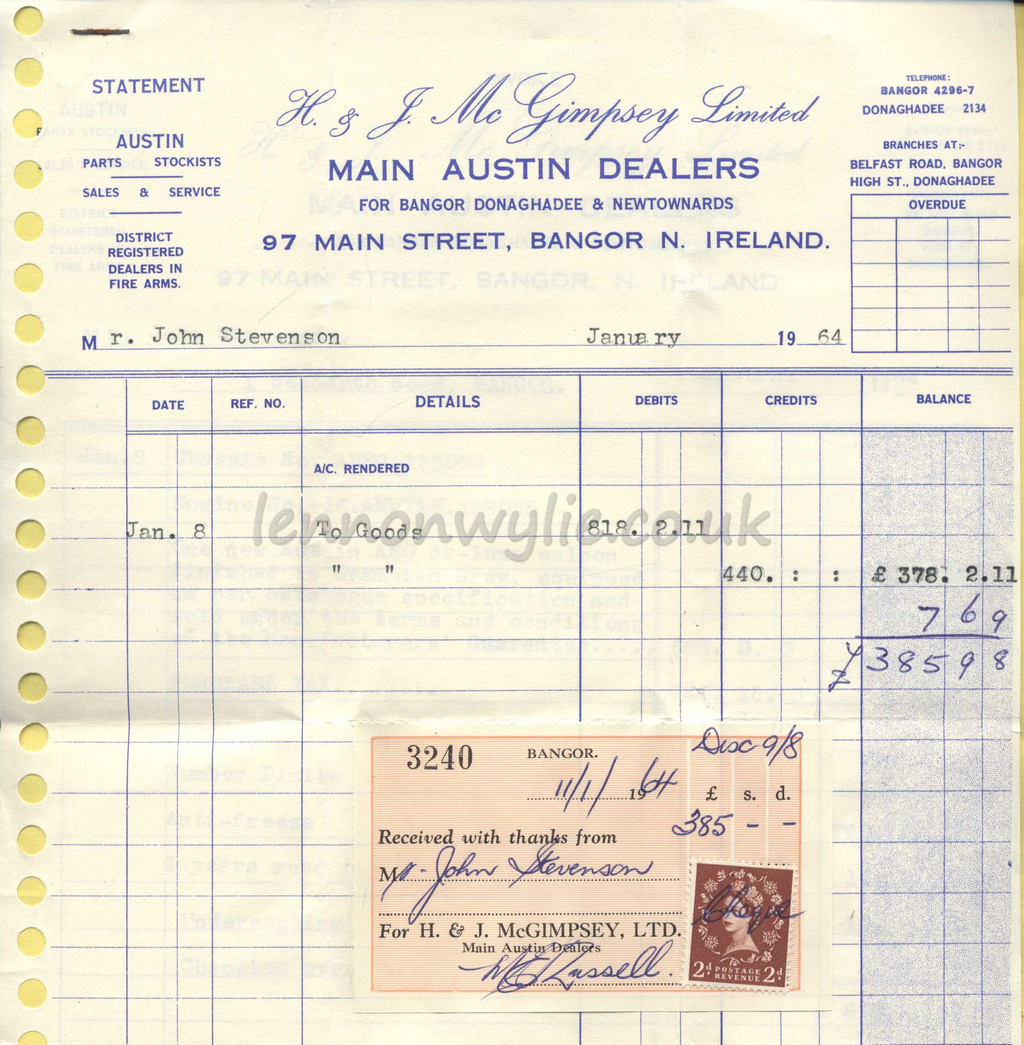 STATEMENT
AUSTIN
PARTS STOCKISTS
SALES & SERVICE
DISTRICT
REGISTERED
DEALERS IN
FIRE ARMS.
H. & J. McGimpsey Limited
MAIN AUSTIN DEALERS
FOR BANGOR DONAGHADEE & NEWTOWNARDS
97 MAIN STREET, BANGOR N. IRELAND.
TELEPHONE:
BANGOR 4296-7
DONAGHADEE 2134
BRANCHES AT:-
BELFAST ROAD, BANGOR
HIGH ST., DONAGHADEE
OVERDUE
Mr. John Stevenson January 19 64
DATE REF. NO. DETAILS DEBITS CREDITS BALANCE
A/C. RENDERED
lennonwylie.co.uk
Jan. 8 To Goods 818. 2.11
" " 440. : : £ 378. 2.11
7 6 9
£ 385 9 8
3240 BANGOR. Disc 9/8
11/1/ 1964 £ s. d.
385 - -
Received with thanks from
Mr. John Stevenson
Cheque
For H. & J. McGIMPSEY, LTD.
Main Austin Dealers
Russell.
2d POSTAGE REVENUE 2d